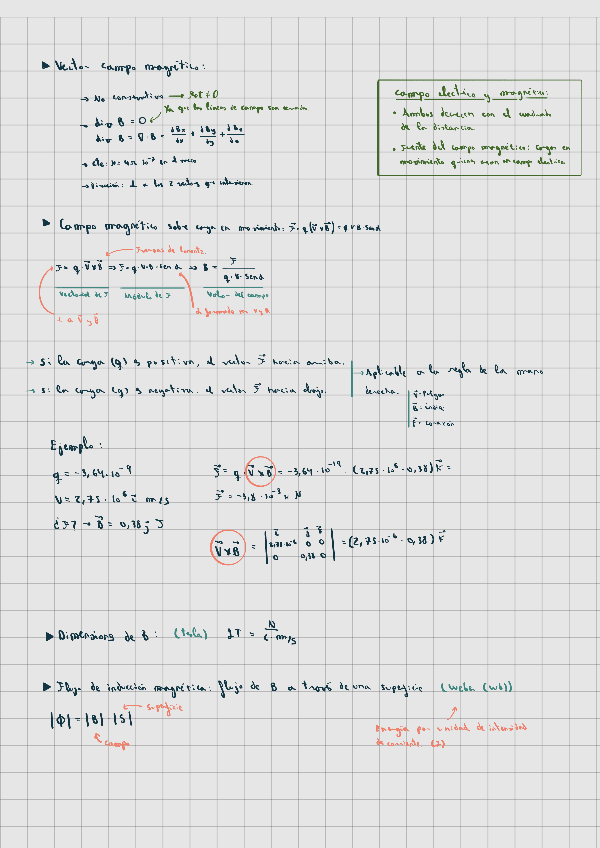 ▶ Vector campo magnético:
→ No conservativo → Rot ≠ 0
→ div B = 0 Ya que las líneas de campo son cerradas
div B = ∇·B = dBx/dx + dBy/dy + dBz/dz
→ Cte: μ = 4π·10⁻⁷ en el vacío
→ Dirección: ⊥ a los 2 vectores que intervienen
Campo electrico y magnético:
• Ambos decrecen con el cuadrado
de la distancia
• Fuente del campo magnético: cargas en
movimiento
▶ Campo magnético sobre carga en movimiento: F = q(V×B) = q·v·B·send
Fuerzas de Lorentz
F = q·V×B ⇒ F = q·v·B·sen α ⇒ B = F / q·v·send
Vectorial de F
Módulo de F
Valor del campo
⊥ a V y B
α formado por v y B
→ Si la carga (q) es positiva, el vector F hacia arriba.
→ Si la carga (q) es negativa, el vector F hacia abajo.
→ Aplicable a la regla de la mano
derecha.
V = Pulgar
B = índice
F = corazón
Ejemplo:
q = -3,64·10⁻⁹
V = 2,75·10⁶ i m/s
¿F? → B = 0,38 j T
F = q·V×B = -3,64·10⁻¹⁹ · (2,75·10⁶ · 0,38) k =
F = -3,8·10⁻³ k N
V×B = | i j k | 2,75·10⁻⁶ 0 0 | 0 0,38 0 | = (2,75·10⁻⁶ · 0,38) k
▶ Dimensiones de B: (Tesla) 1T = N / C·m/s
▶ Flujo de inducción magnética: flujo de B a través de una superficie (Weber (Wb))
|Φ| = |B| |S| ← superficie
campo
Energía por unidad de intensidad
de corriente (I)